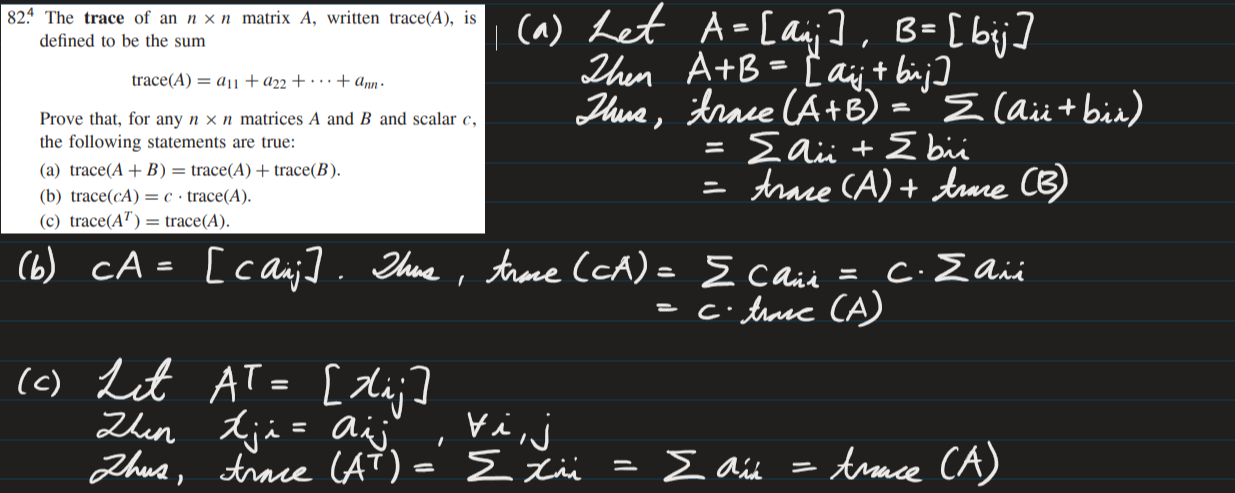 82.⁴ The trace of an n × n matrix A, written trace(A), is
defined to be the sum
trace(A) = a₁₁ + a₂₂ + ··· + aₙₙ.
Prove that, for any n × n matrices A and B and scalar c,
the following statements are true:
(a) trace(A + B) = trace(A) + trace(B).
(b) trace(cA) = c · trace(A).
(c) trace(Aᵀ) = trace(A).
(a) Let A = [aij], B = [bij]
Then A+B = [aij + bij]
Thus, trace (A+B) = Σ (aii + bii)
= Σ aii + Σ bii
= trace (A) + trace (B)
(b) cA = [c aij]. Thus, trace (cA) = Σ c aii = c · Σ aii
= c · trace (A)
(c) Let Aᵀ = [xij]
Then xji = aij, ∀ i, j
Thus, trace (Aᵀ) = Σ xii = Σ aii = trace (A)